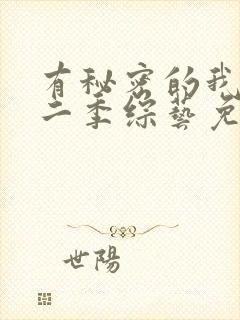 有秘密的我
二季综藝免
世陽